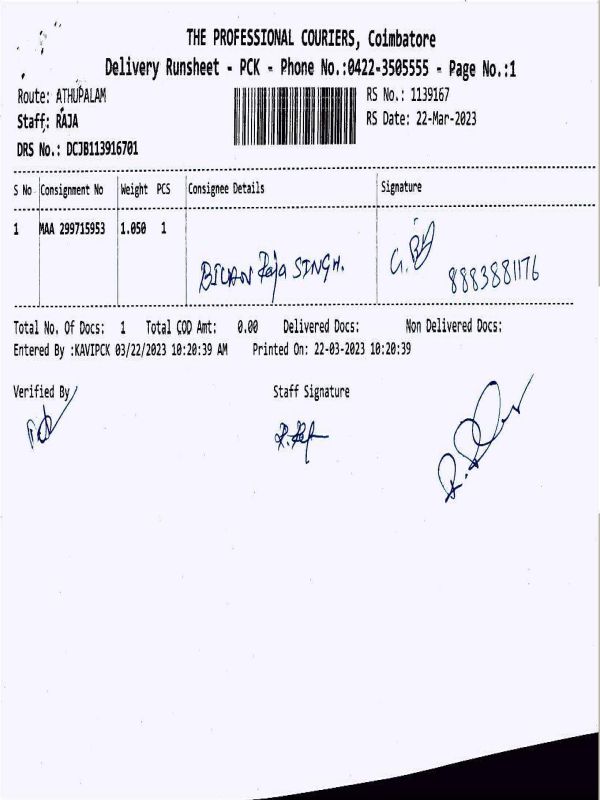 THE PROFESSIONAL COURIERS, Coimbatore
Delivery Runsheet - PCK - Phone No.:0422-3505555 - Page No.:1
Route: ATHUPALAM
RS No.: 1139167
Staff: RAJA
RS Date: 22-Mar-2023
DRS No.: DCJB113916701
S No Consignment No Weight PCS Consignee Details Signature
1 MAA 299715953 1.050 1
Raja SINGH.
8883881176
Total No. Of Docs: 1 Total COD Amt: 0.00 Delivered Docs: Non Delivered Docs:
Entered By :KAVIPCK 03/22/2023 10:20:39 AM Printed On: 22-03-2023 10:20:39
Verified By Staff Signature